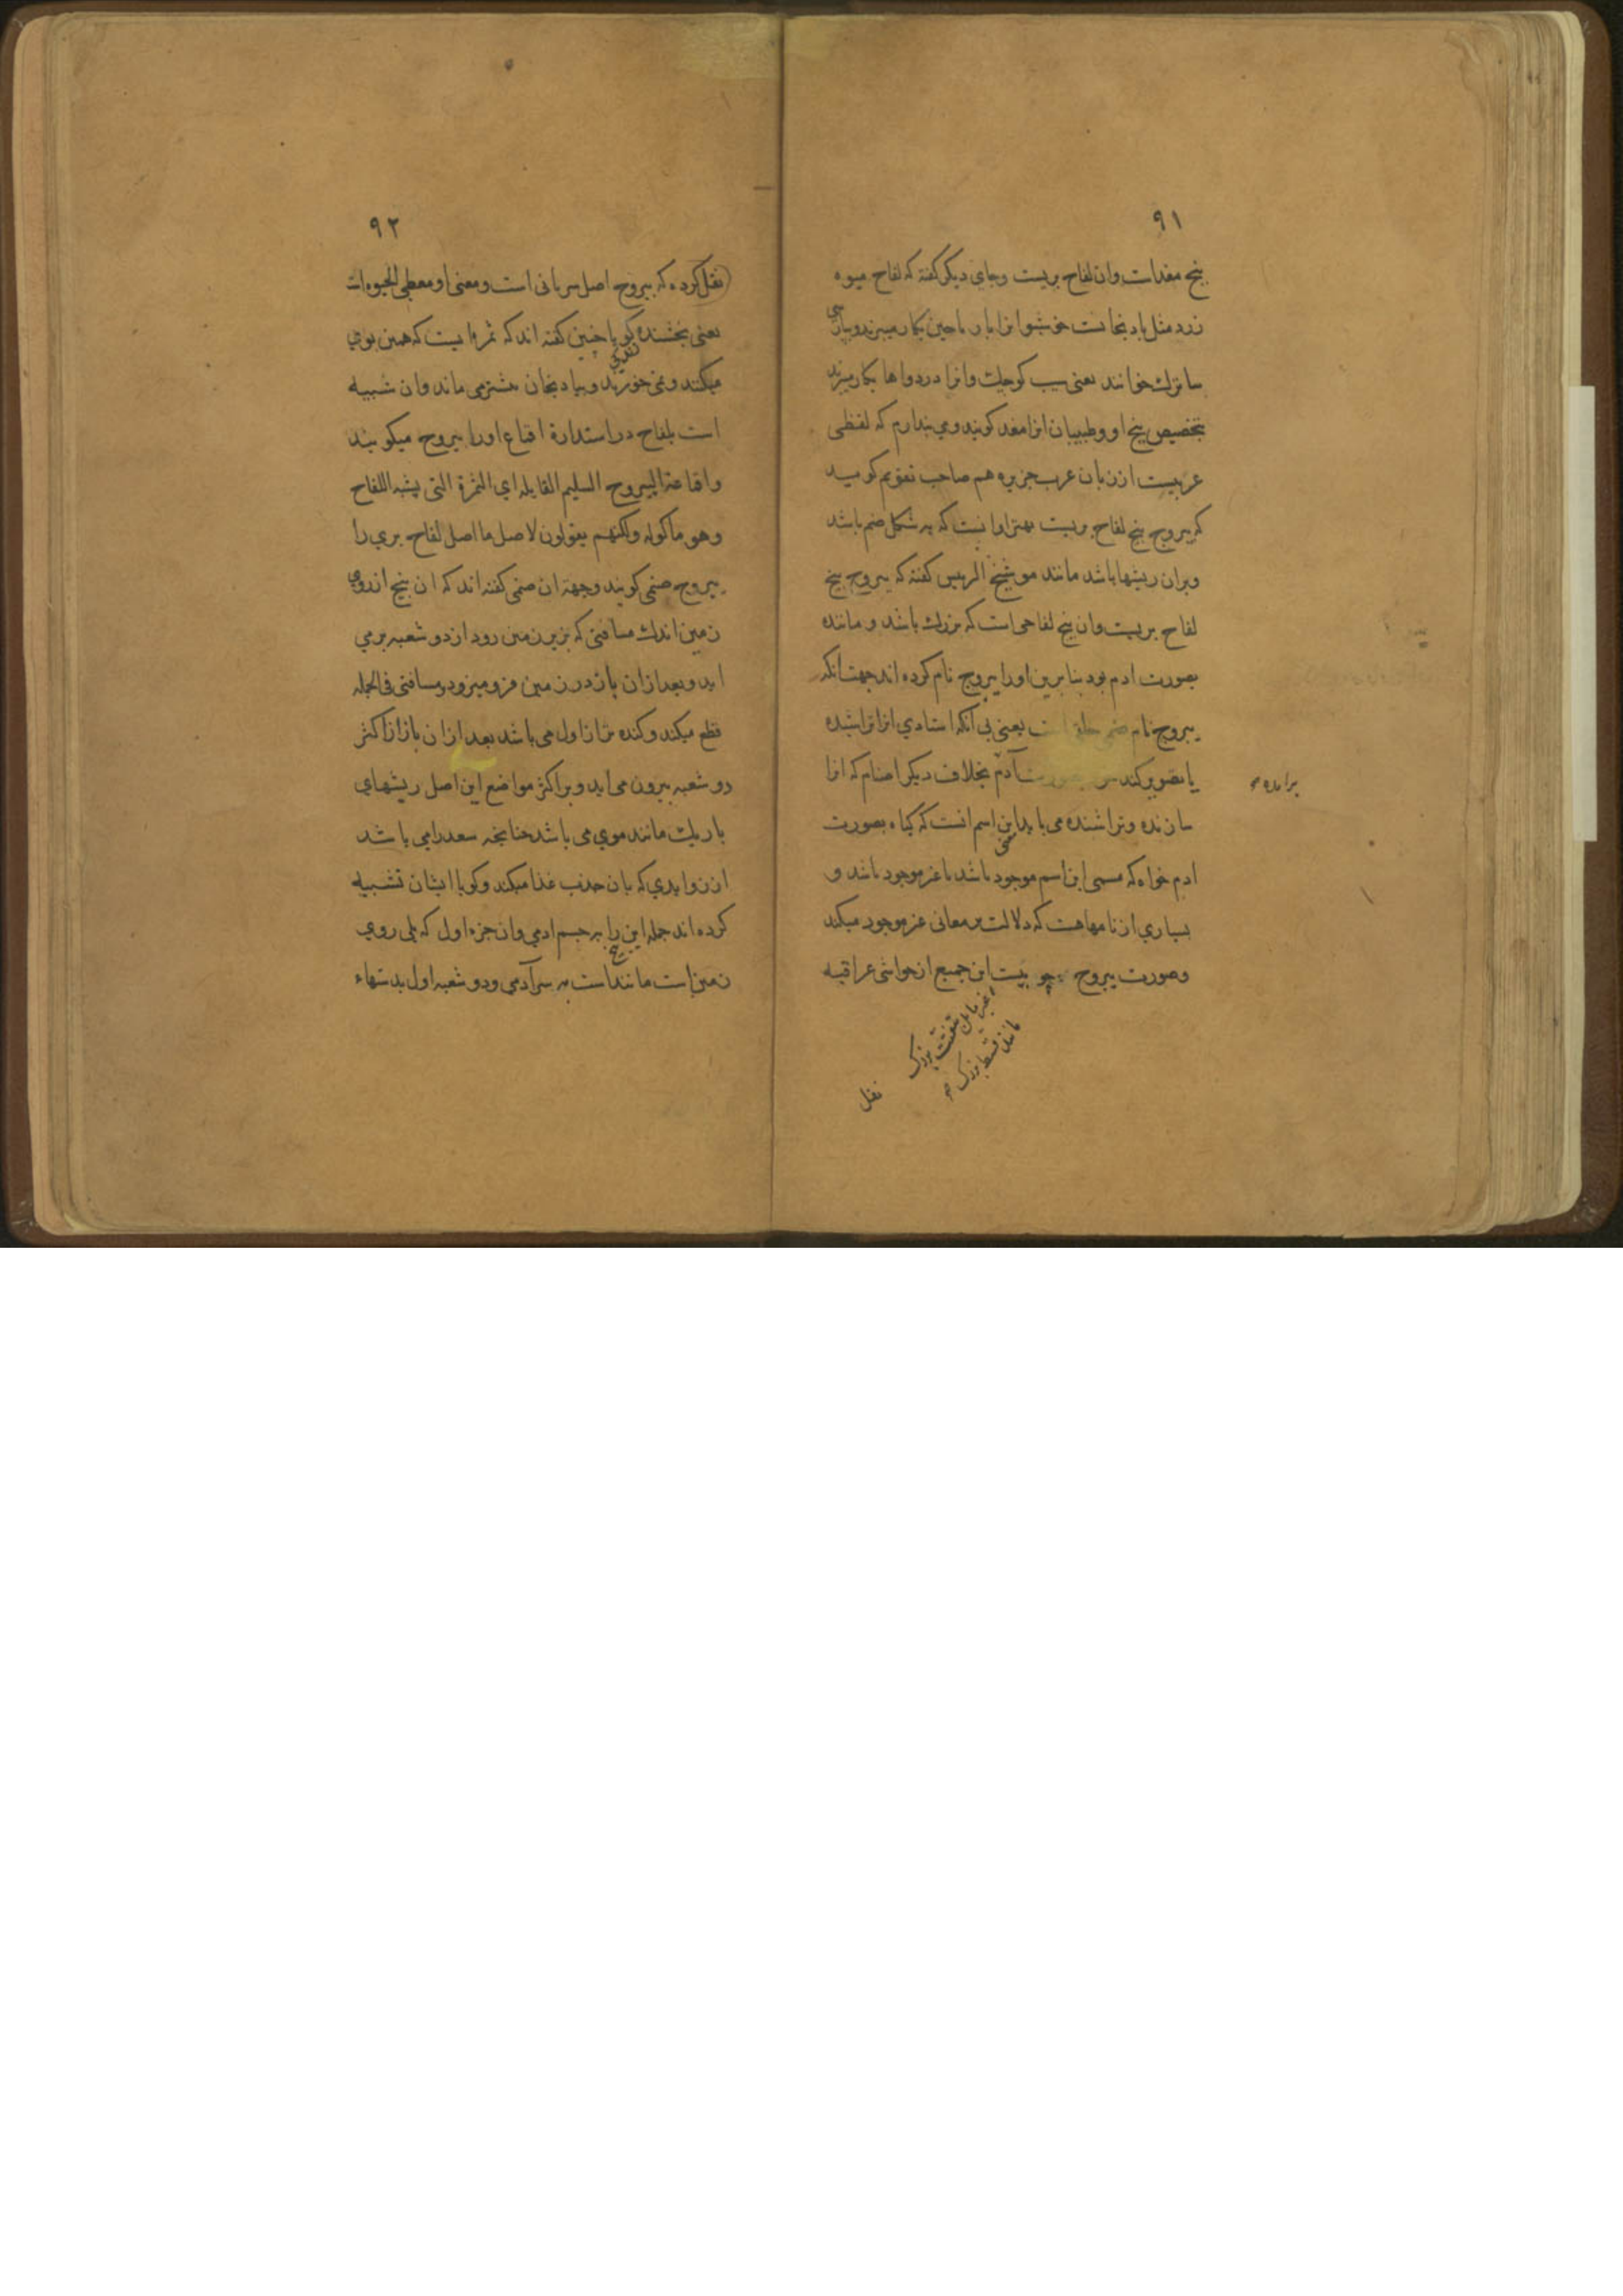 ۹۱
بیخ مغدات وان لفاح بریست وجای دیکر کفته که لفاح میوه
زرد مثل بادنجانست خوشبو انرا با ریاحین بکار میبرند وبپارسی
سابزك خوانند یعنی سیب کوچك وانرا در دواها بکار میبرند
بتخصیص بیخ او وطبیبان انرا مغد کویند ومی پندارم که لفظی
عربیست از زبان عرب جزیره هم صاحب تقویم کوید
که یبروج بیخ لفاح بریست بهتر اوانست که به شکل صنم باشد
وبران ریشها باشد مانند مو شیخ الرییس کفته که یبروج بیخ
لفاح بریست وان بیخ لفاحی است که بزرك باشد و ماننده
بصورت ادم بود بنا برین اورا یبروج نام کرده اند جهت انکه
یبروج نام صنمی یعنی بی آنکه استادی انرا تراشیده
یا تصویر کند آدم بخلاف دیکر اصنام که انرا
برامده
سازنده وتراشنده می باید این اسم انست که کیاه بصورت
ادم خواه که مسمی این اسم موجود باشد یا غیر موجود باشد و
بسیاری از نامهاهست که دلالت بر معانی غیر موجود میکند
وصورت یبروج چوبیست این جمیع از حواشی عراقیه
اغبر مایل بتفتت بزرك
مانند قسط بزرك
نقل
۹۲
نقل کرده که یبروح اصل سریانی است ومعنی او معطی الحیوه است
یعنی بخشنده کویا چنین کفته اند که ثمره ایست که همین بوی
میکنند ونمی خورند وببادنجان بیشتر می ماند وان شبیه
است بلفاح در استدارة اقماع اورا یبروح میکویند
واقماعة الیبروح السلیم القایله ای الثمرة التی یشبه اللفاح
وهو ماکوله ولکنهم یقولون لاصل ما اصل لفاح بری را
یبروح صنمی کویند وجهة ان صنمی کفته اند که ان بیخ از روی
زمین اندك مسافتی که بزیر زمین رود ازدو شعبه برمی
اید وبعد ازان باز در زمین فرو میرود ومسافتی فی الجمله
قطع میکند وکنده تر از اول می باشد بعد ازان باز از اکثر
دو شعبه بیرون می اید وبر اکثر مواضع این اصل ریشهای
باریك مانند موی می باشد چنانچه سعد رامی باشد
از زوایدی که بان جذب غذا میکند وکویا ایشان تشبیه
کرده اند جمله این بیخ را بر جسم ادمی وان جزء اول که یلی روی
زمین است مانند است به سر آدمی ودو شعبه اول بدستهاء